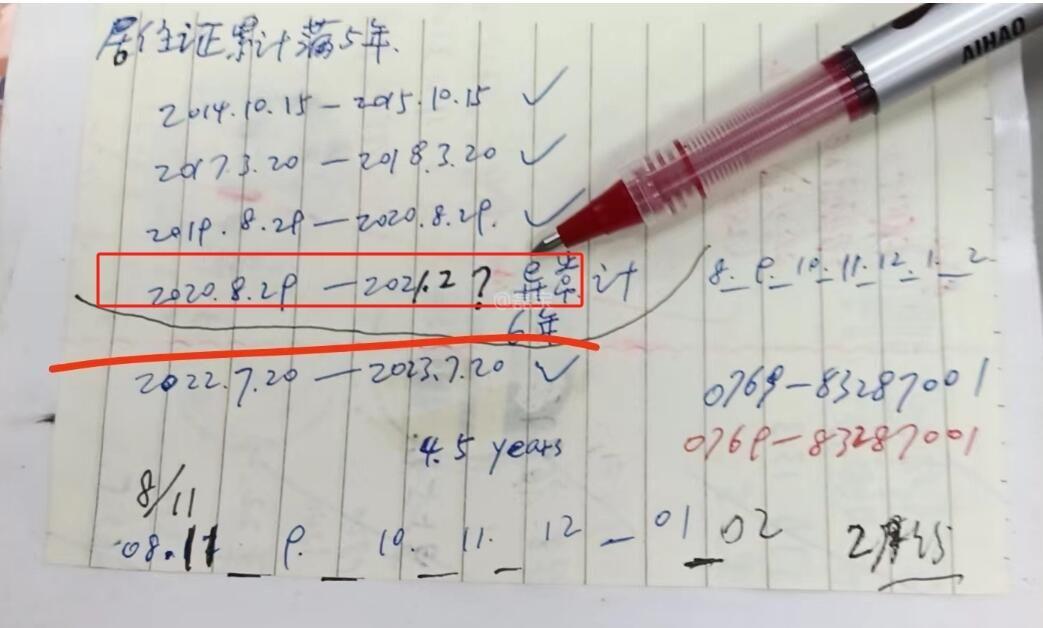 居住证累计满5年.
AIHAO
2014.10.15 — 2015.10.15 ✓
2017.3.20 — 2018.3.20 ✓
2019.8.29 — 2020.8.29. ✓
2020.8.29 — 2021.2 ? 累计 8. 9. 10. 11. 12. 1. 2
6年
2022.7.20 — 2023.7.20 ✓
0769-83287001
4.5 years
0769-83287001
8/11
08.11 9. 10. 11. 12 — 01 02